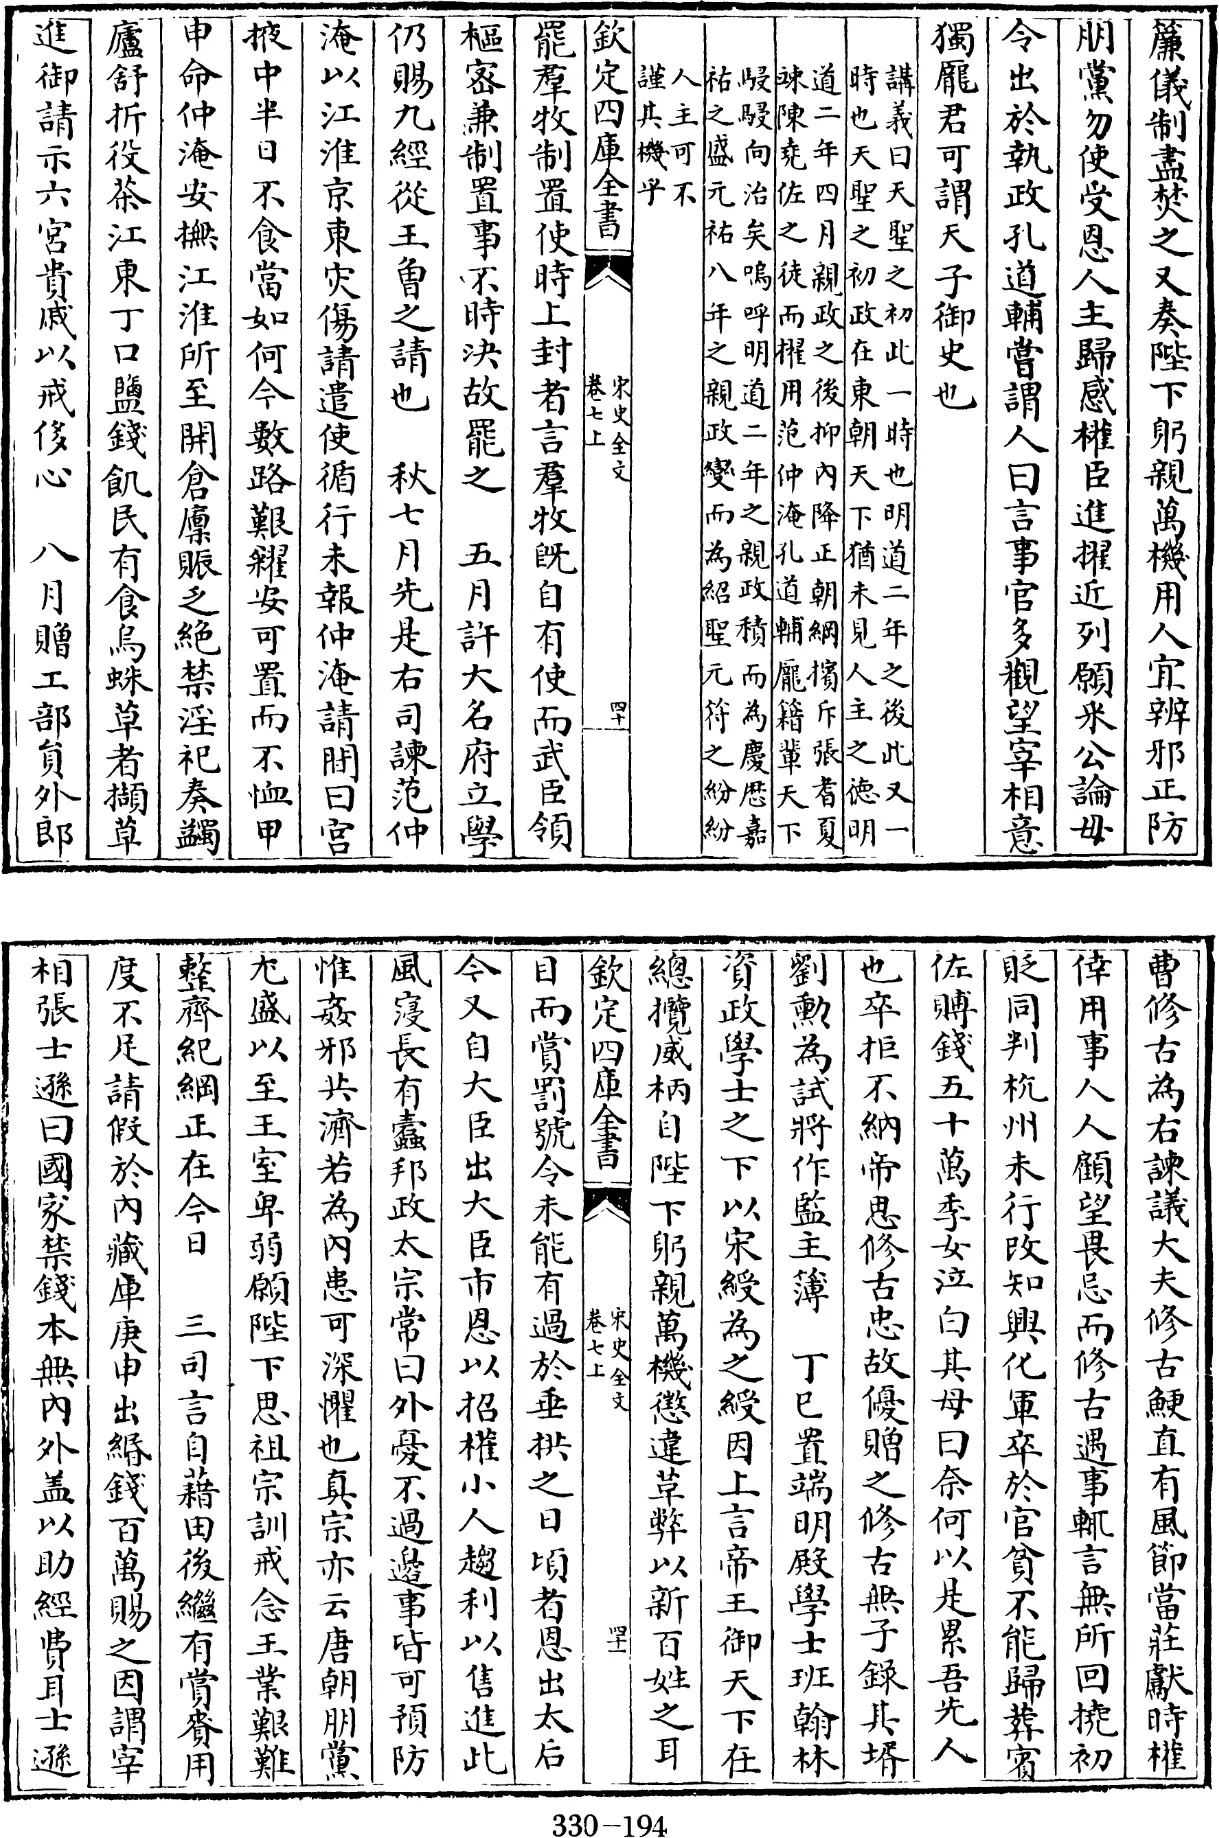 簾儀制盡焚之又奏陛下躬親萬機用人宜辨邪正防
朋黨勿使受恩人主歸感權臣進擢近列願采公論毋
令出於執政孔道輔嘗謂人曰言事官多觀望宰相意
獨龐君可謂天子御史也
講義曰天聖之初此一時也明道二年之後此又一
時也天聖之初政在東朝天下猶未見人主之德明
道二年四月親政之後抑內降正朝綱擯斥張耆夏
竦陳堯佐之徒而擢用范仲淹孔道輔龐籍輩天下
駸駸向治矣嗚呼明道二年之親政積而為慶厯嘉
祐之盛元祐八年之親政變而為紹聖元符之紛紛
人主可不
謹其機乎
欽定四庫全書
宋史全文
卷七上
四十
罷羣牧制置使時上封者言羣牧旣自有使而武臣領
樞宻兼制置事不時決故罷之 五月許大名府立學
仍賜九經從王曾之請也 秋七月先是右司諫范仲
淹以江淮京東灾傷請遣使循行未報仲淹請閒曰宮
掖中半日不食當如何今數路艱糴安可置而不恤甲
申命仲淹安撫江淮所至開倉廩賑乏絕禁淫祀奏蠲
廬舒折役茶江東丁口鹽錢飢民有食烏蛛草者擷草
進御請示六宮貴戚以戒侈心 八月贈工部員外郎
曹修古為右諫議大夫修古鯁直有風節當莊獻時權
倖用事人人顧望畏忌而修古遇事輒言無所回撓初
貶同判杭州未行改知興化軍卒於官貧不能歸葬賓
佐賻錢五十萬季女泣白其母曰奈何以是累吾先人
也卒拒不納帝思修古忠故優贈之修古無子錄其壻
劉勳為試將作監主簿 丁巳置端明殿學士班翰林
資政學士之下以宋綬為之綬因上言帝王御天下在
總攬威柄自陛下躬親萬機懲違革弊以新百姓之耳
目而賞罰號令未能有過於垂拱之日頃者恩出太后
今又自大臣出大臣市恩以招權小人趨利以售進此
欽定四庫全書
宋史全文
卷七上
四十一
風寖長有蠹邦政太宗常曰外憂不過邊事皆可預防
惟姦邪共濟若為內患可深懼也真宗亦云唐朝朋黨
尤盛以至王室卑弱願陛下思祖宗訓戒念王業艱難
整齊紀綱正在今日 三司言自藉田後繼有賞賚用
度不足請假於內藏庫庚申出緡錢百萬賜之因謂宰
相張士遜曰國家禁錢本無內外盖以助經費耳士遜
330-194